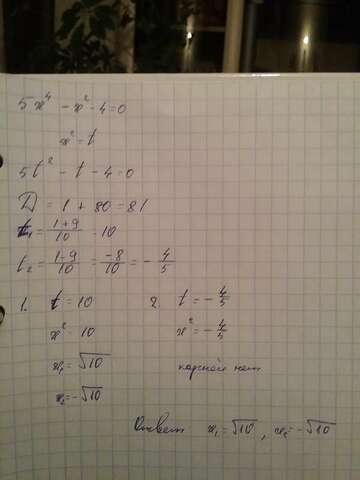 5x⁴ - x² - 4 = 0
x² = t
5t² - t - 4 = 0
D = 1 + 80 = 81
t₁ = (1+9)/10 = 10
t₂ = (1-9)/10 = -8/10 = -4/5
1. t = 10 2. t = -4/5
x² = 10 x² = -4/5
x₁ = √10 корней нет
x₂ = -√10
Ответ x₁ = √10, x₂ = -√10